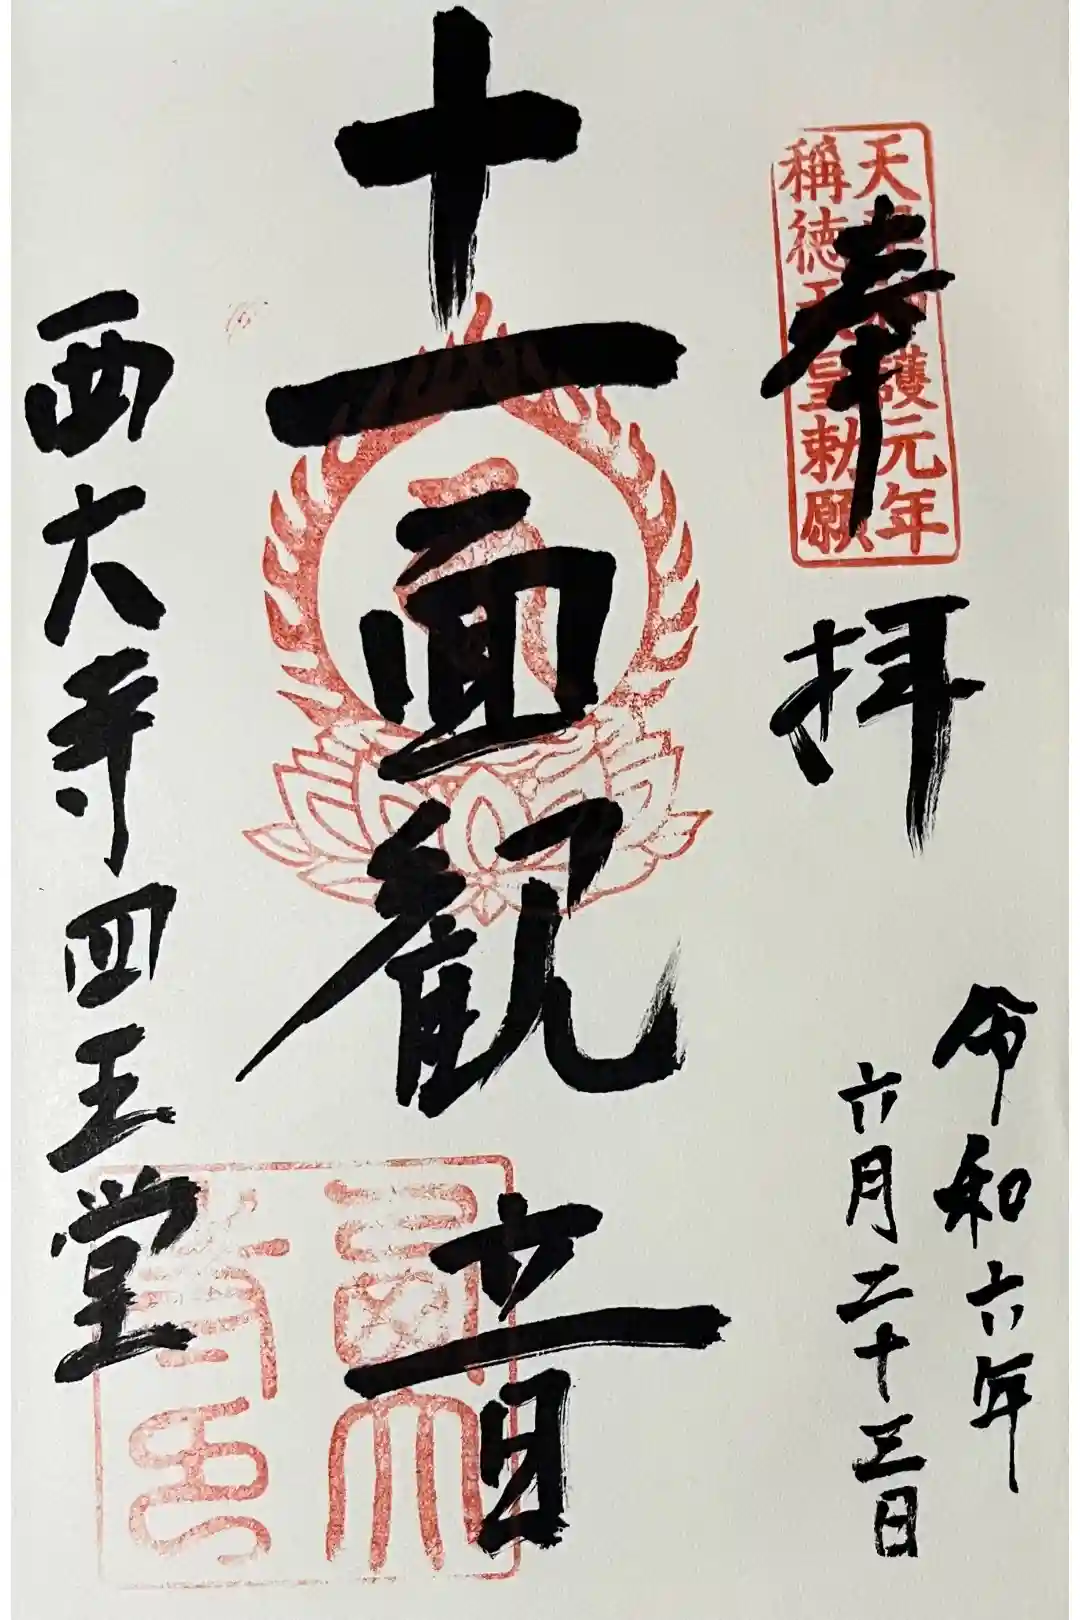 天平神護元年
稱徳天皇勅願
奉拝
令和六年
六月二十三日
十一面観音
西大寺四王堂